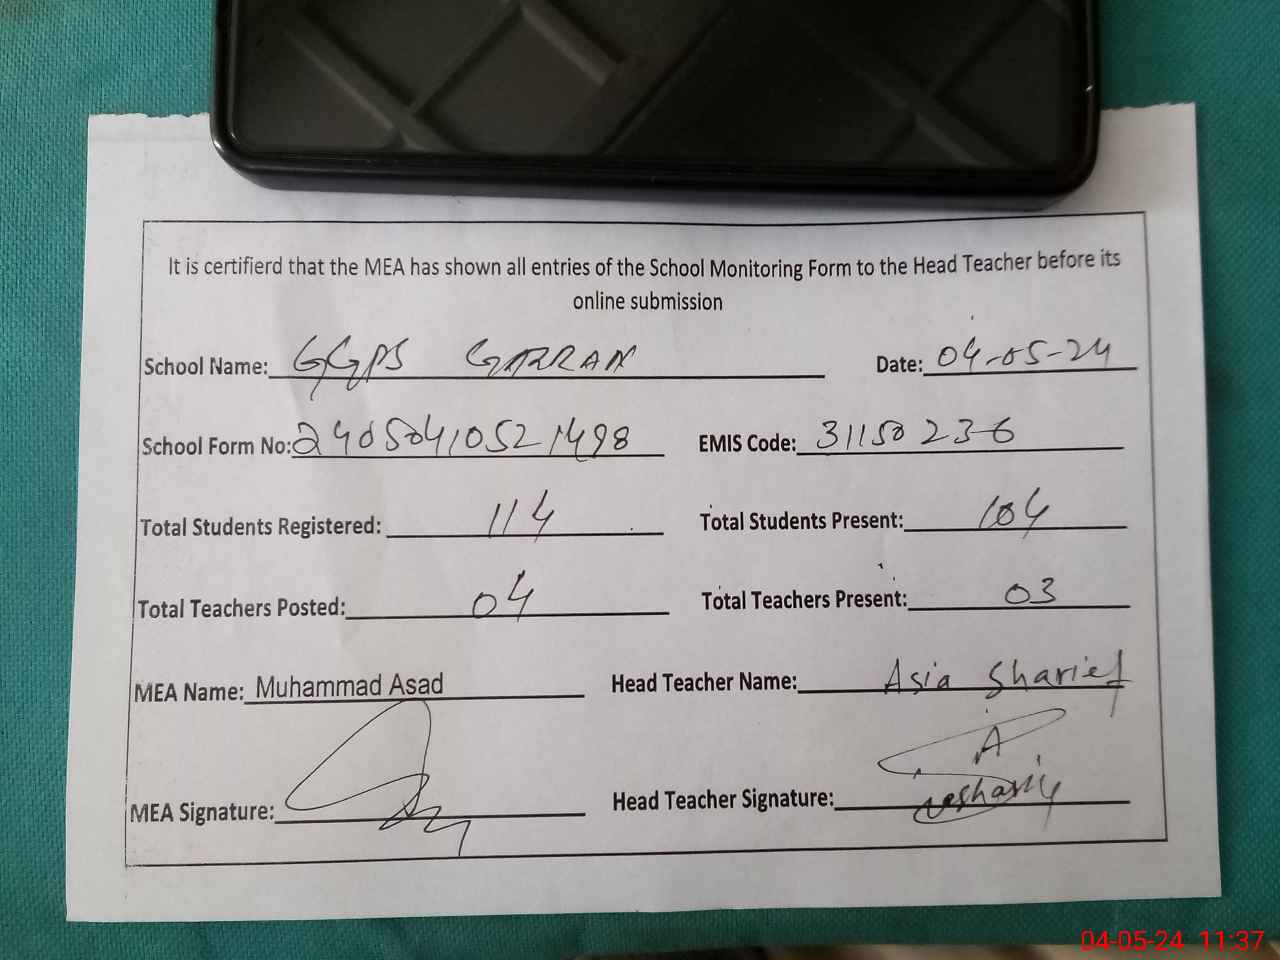 It is certifierd that the MEA has shown all entries of the School Monitoring Form to the Head Teacher before its
online submission
School Name: GGPS GARRAN Date: 04-05-24
School Form No: 24050410521498 EMIS Code: 31150236
Total Students Registered: 114 Total Students Present: 104
Total Teachers Posted: 04 Total Teachers Present: 03
MEA Name: Muhammad Asad Head Teacher Name: Asia Sharief
MEA Signature: Head Teacher Signature:
04-05-24 11:37